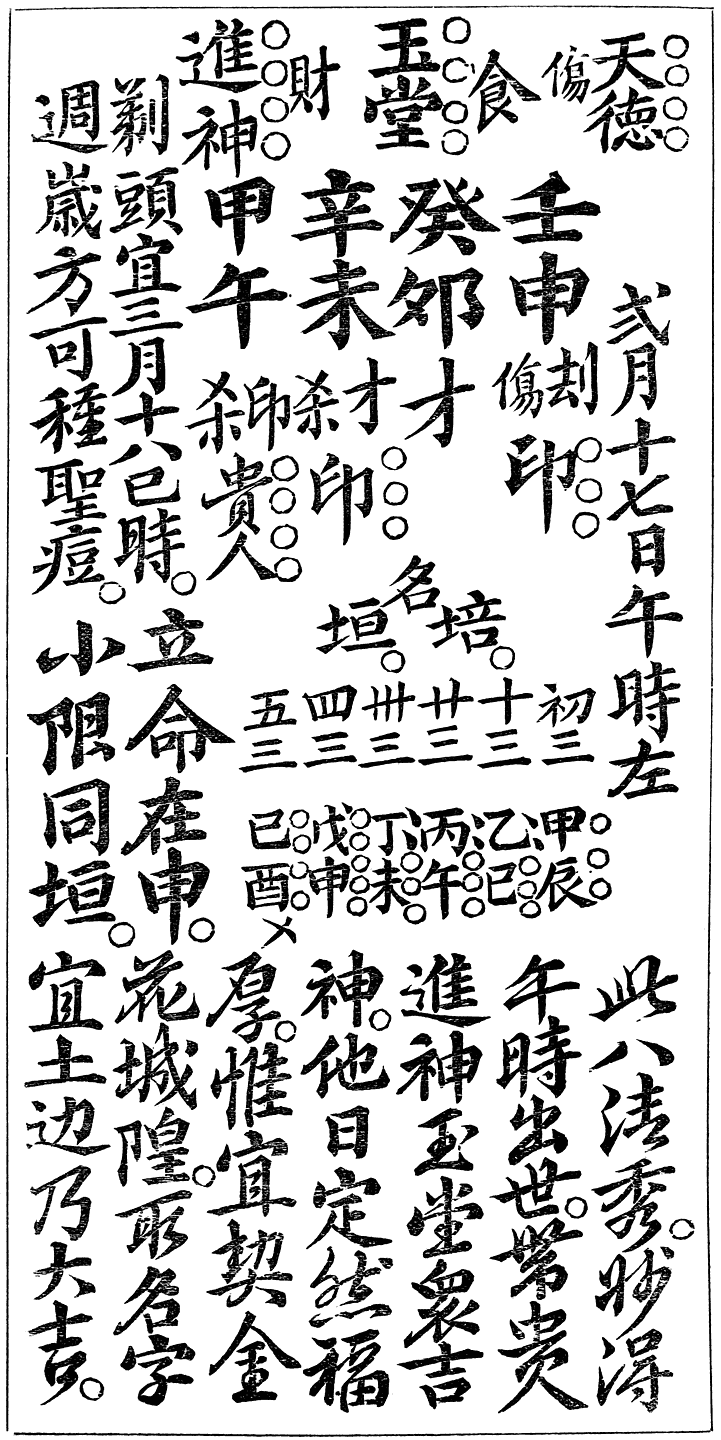 天德
弍月十七日午時左
傷
壬申
刦
傷
印
食
玉堂
癸卯
才
財
辛未
才
杀
印
進神
甲午
印
杀
貴人
剃頭宜三月十八巳時。
週歲方可種聖痘。
名
培。
垣。
初三
十三
廿三
卅三
四三
五三
甲辰
乙巳
丙午
丁未
戊申
己酉
立命在申。
小限同垣。
此八法秀。妙得
午時出世。帶貴
進神玉堂衆吉
神。他日定然福
厚。惟宜契金
花城隍。取名字
宜土边乃大吉。